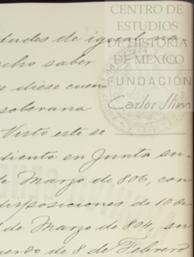 CENTRO DE
ESTUDIOS
DE HISTORIA
DE MEXICO
FUNDACIÓN
Carlos Slim
tudes de igual na
cho saber
diese cuen
soberana
Visto este
diente en Junta su
de Marzo de 806, con
disposiciones de 10 de
de Marzo de 804, su
uerdo de 8 de Febrero